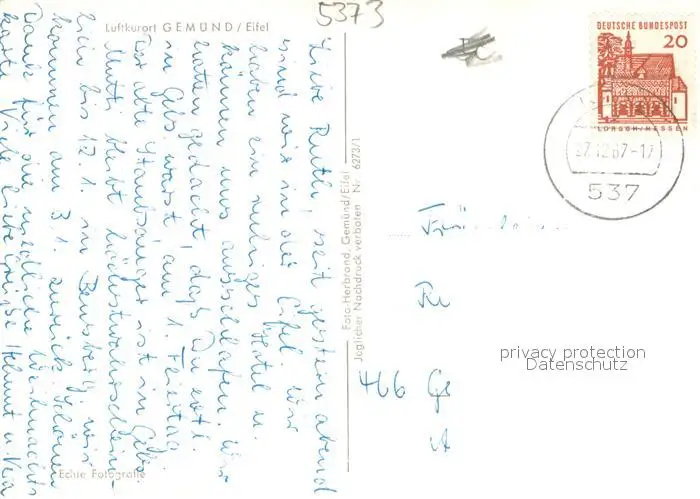 5373
Luftkurort GEMÜND / Eifel
Liebe Ruth, seit gestern abend
sind wir in der Eifel. Wir
haben ein ruhiges Hotel u.
können uns ausschlafen. Wir
hatten gedacht, dass Du evtl.
in Gbg wärst, am 1. Feiertag.
Der alte Staubsauger ist in Gbg.
Mutti bleibt höchstwahrschein-
lich bis 12.1. in Bensberg, wir
kommen am 3.1. zurück. Schönen
Dank für die niedliche Weihnachts
karte. Viele liebe Grüße Helmut u.
Echte Fotografie
Foto-Herbrand, Gemünd/Eifel
Jeglicher Nachdruck verboten Nr. 6273/1
DEUTSCHE BUNDESPOST
20
LORSCH/HESSEN
27.12.67-17
537
Fräulein
Ru
466 Ge
privacy protection
Datenschutz